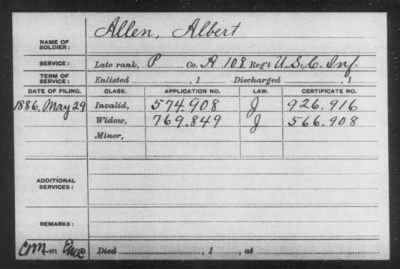 NAME OF SOLDIER: Allen, Albert
SERVICE: Late rank, P Co. A 108 Reg't U.S.C. Inf.
TERM OF SERVICE: Enlisted , 1 Discharged , 1
DATE OF FILING. CLASS. APPLICATION NO. LAW. CERTIFICATE NO.
1886, May 29 Invalid, 574.908 J 926.916
Widow, 769.849 J 566.908
Minor,
ADDITIONAL SERVICES:
REMARKS:
Died , 1 , at